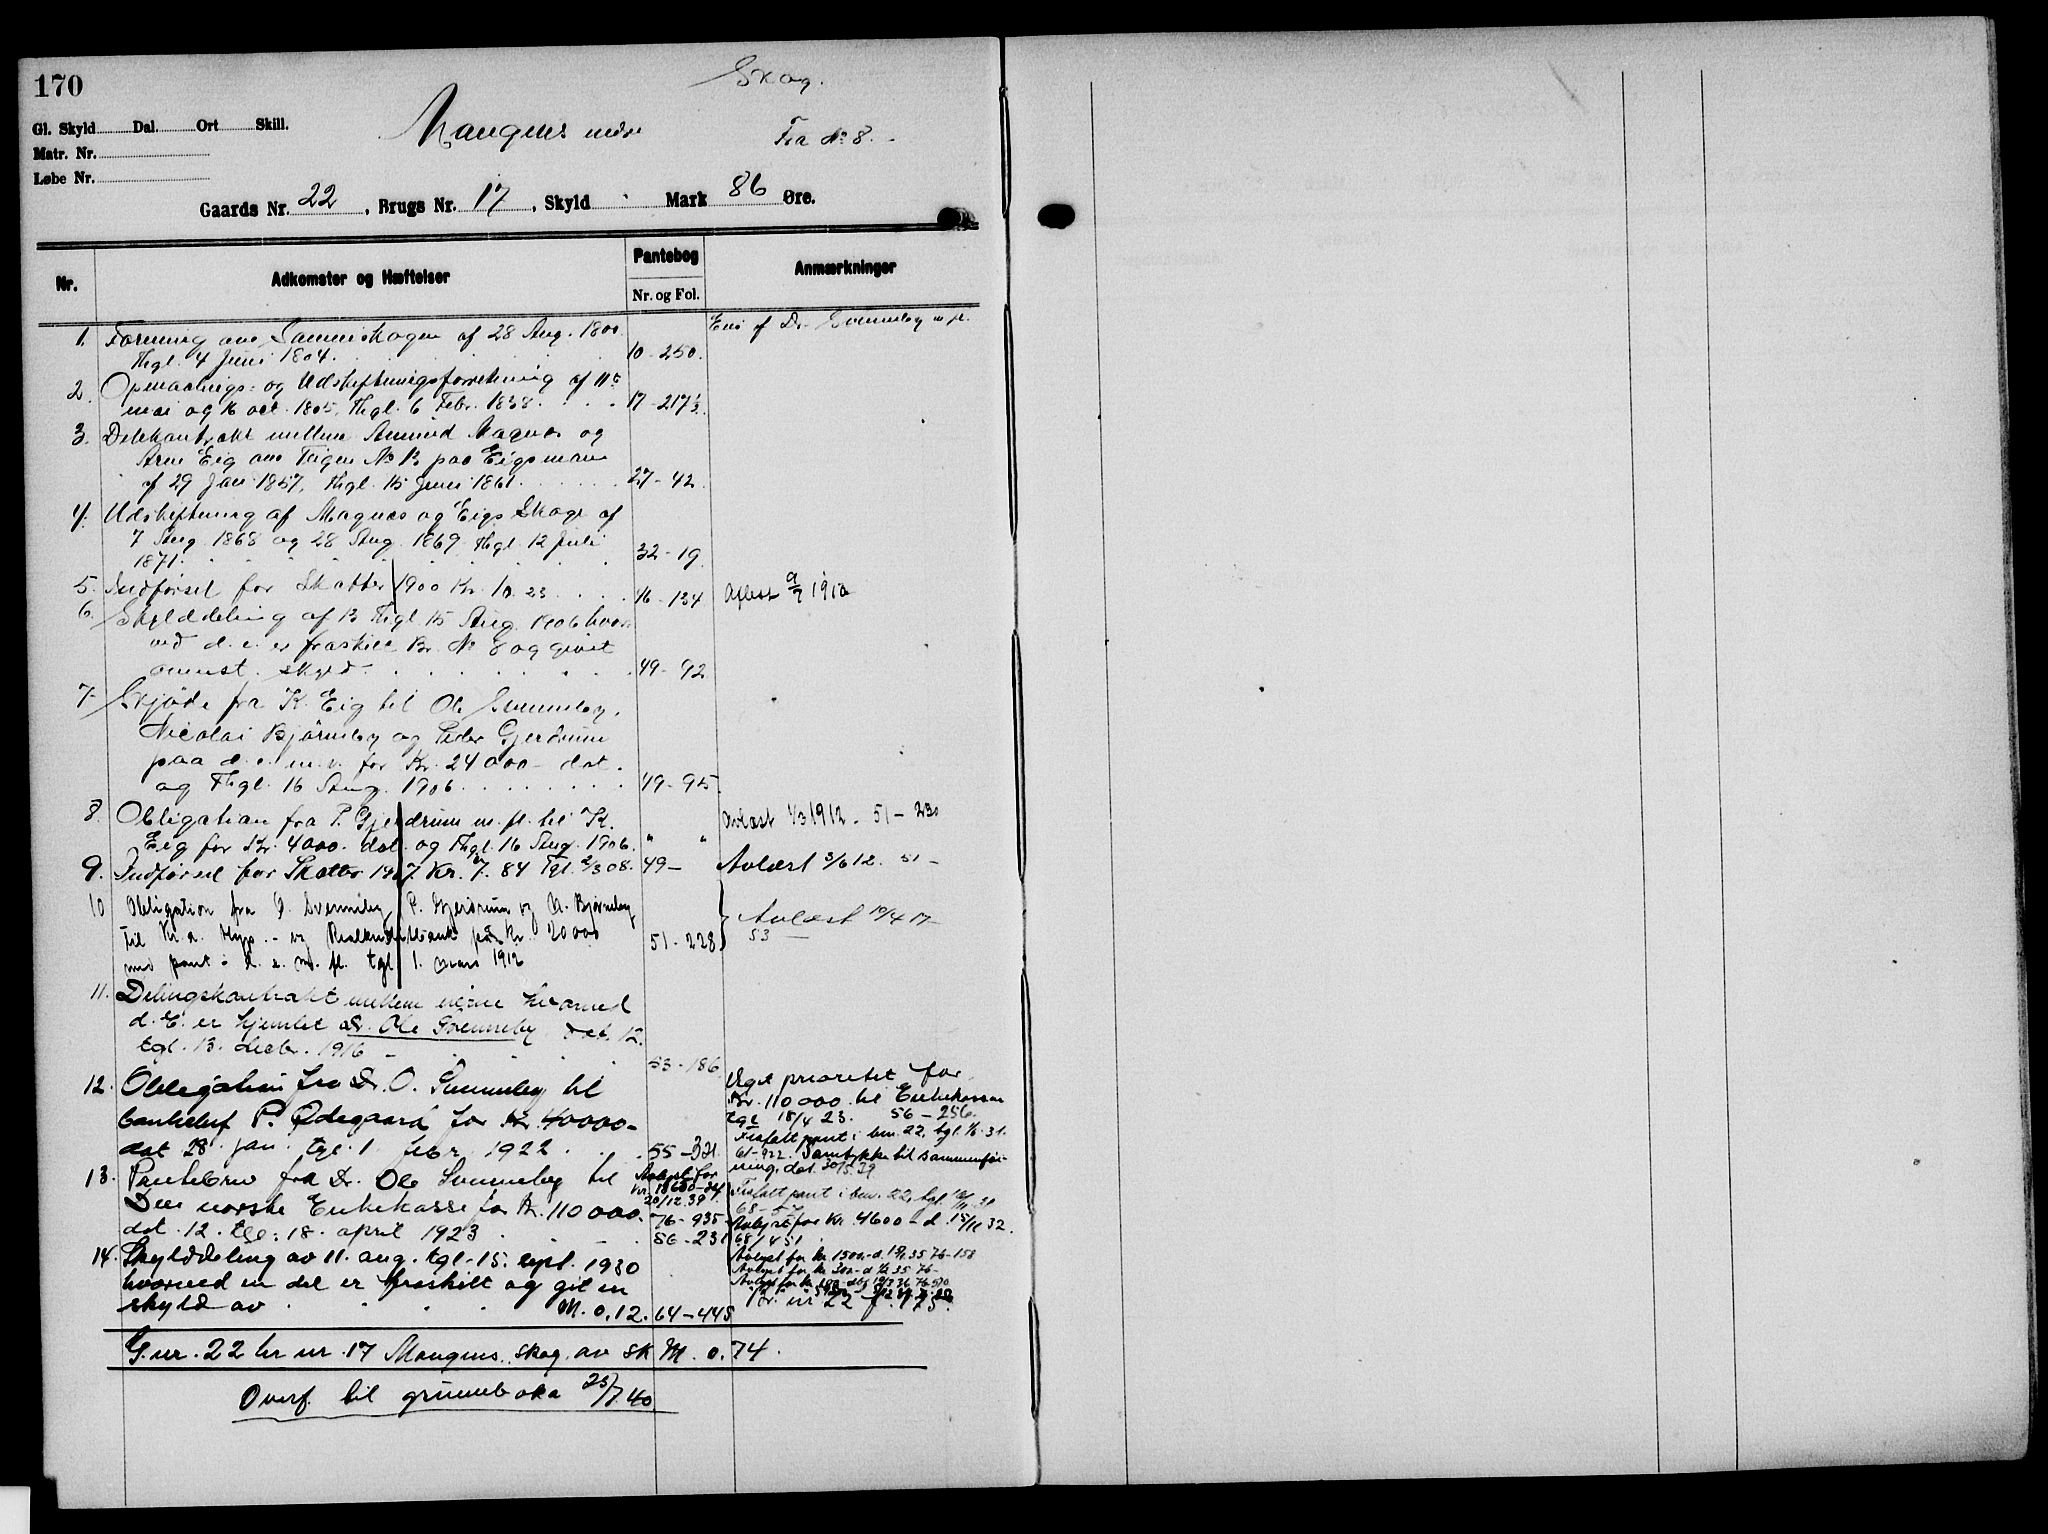 170
Skog.
Gl. Skyld Dal. Ort Skill.
Mangens nedre
Fra № 8.
Matr. Nr.
Løbe Nr.
Gaards Nr. 22, Brugs Nr. 17, Skyld Mark 86 Øre.
Nr. Adkomster og Hæftelser Pantebog Nr. og Fol. Anmærkninger
Eies af Dr. Svenneby m. fl.
1. Forening om Sameiskogen af 28 Aug. 1800
Thgl. 4 Juni 1804. 10-250.
2. Opmaalings- og Udskiftningsforretning af 11te
mai og 16 oct. 1805, Thgl. 6 Febr. 1838. 17-217
3. Delekontrakt mellem Amund Magnes og
Arne Eig om Teigen № 13 paa Eigsmarn
af 29 Jan. 1857, Thgl. 15 Juni 1861. 27-42.
4. Udskiftning af Magnes og Eigs Skoge af
7 Aug. 1868 og 28 Aug. 1869 Thgl. 12 Juli
1871. 32-19.
5. Indførsel for Skatter 1900 Kr. 10.23 46-134 Aflæst 9/7 1910
6. Skylddeling af 13 Thgl 15 Aug. 1906 hvor-
ved d. e. er fraskilt Br. № 8 og givet
anmst. skyld. 49-92
7. Skjøde fra K. Eig til Ole Svenneby,
Nicolai Bjørneby og Peder Gjerdrum
paa d. e. m. v. for Kr. 24000- dat.
og Thgl. 16 Aug. 1906. 49-95.
8. Obligation fra P. Gjerdrum m. fl. til K.
Eig for Kr. 4000. dat. og Thgl. 16 Aug. 1906. " " Avlæst 1/3 1912 - 51-230
9. Indførsel for Skatter 1907 Kr. 7.84 Tgl. 2/3 08. 49- Avlæst 3/6 12. 51-
10 Obligation fra O. Svenneby, P. Gjerdrum og N. Bjørneby
til Kr.a. Hyp.- og Realkreditbank på kr. 20000
med pant i d. e. m. fl. tgl 1. mars 1912 51-228 Avlæst 10/4 17
53
11. Delingskontrakt mellem eierne hvorved
d. E. er hjemlet Dr. Ole Svenneby dat. 12.
tgl. 13. decbr. 1916 - 53-186
12. Obligation fra Dr. O. Svenneby til
bankchef P. Ødegaard for Kr. 40000-
dat 28. jan. tgl. 1 febr. 1922. 55-321
Veget prioritet for
Kr. 110000 til Enkekassen
tgl 18/4 23. 56-256.
Frafalt pant i brn. 22, tgl. 1/6 31.
61-922. Samtykke til sammenføi-
ning, dat. 30/5.39
13. Pantebrev fra Dr. Ole Svenneby til
Den norske Enkekasse for Kr. 110000.
dat. 12. tgl. 18. april 1923
Avlyst for
20/12.39.
76-935
56-231
Frafalt pant i brn. 22, tgl.
Avlyst for Kr. 4600- d. 15/11 32.
68/451
14. Skylddeling av 11. aug. tgl. 15. sept. 1930
hvorved en del er fraskilt og git en
skyld av M. 0.12. 64-445
Br. nr 22 f. 175.
G.nr. 22 br nr. 17 Mangens skog. av sk M. 0.74.
Overf. til grunnboka 25/7.40